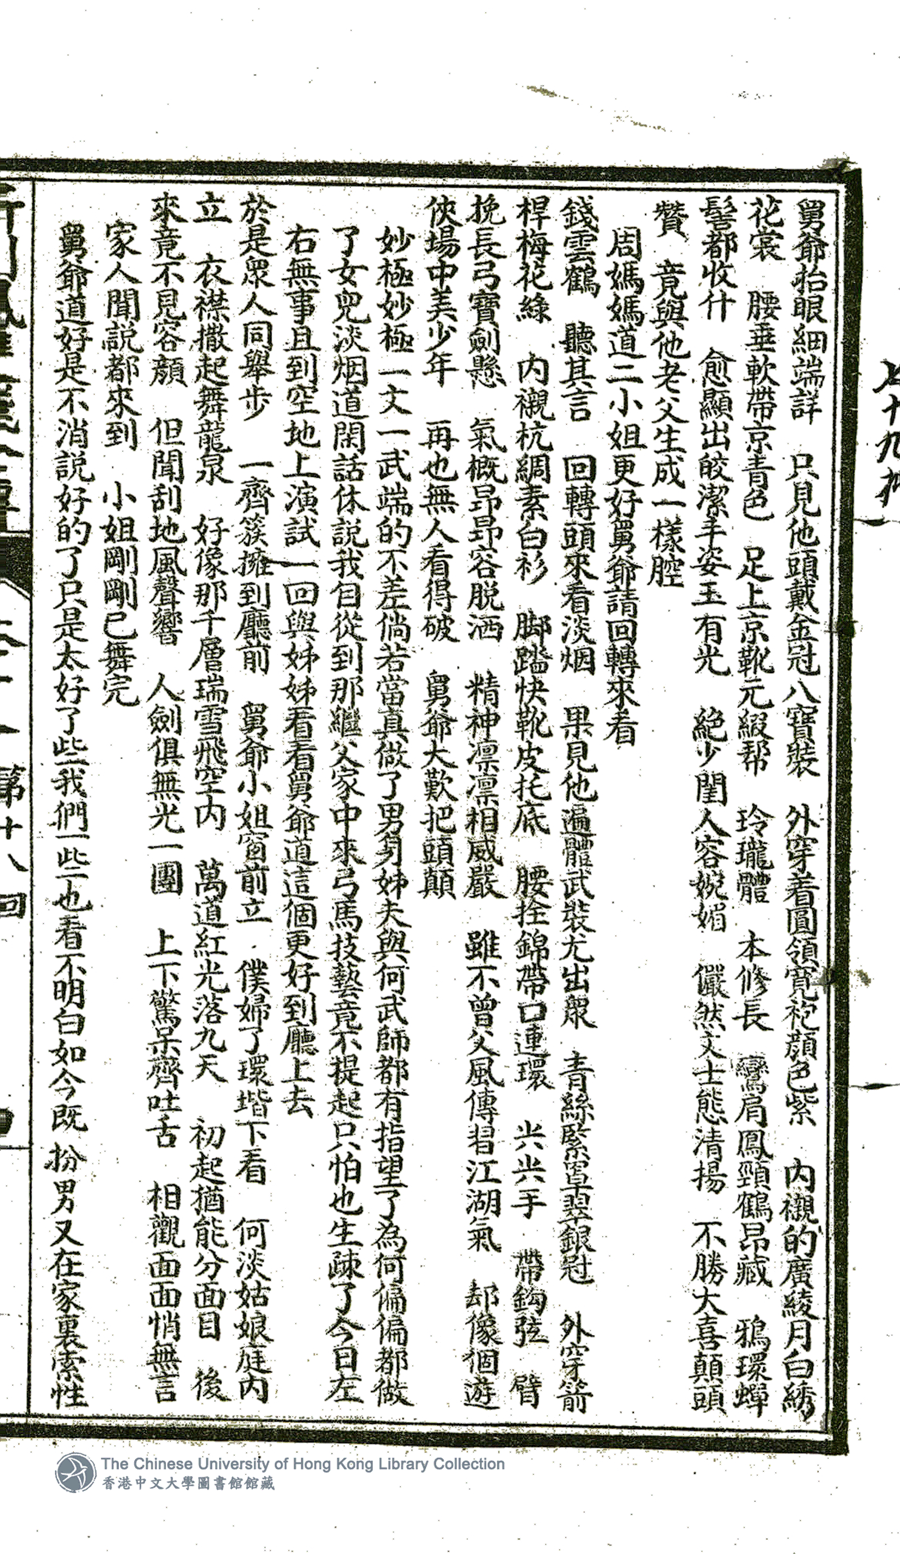 舅爺抬眼細端詳　只見他頭戴金冠八寶裝　外穿着圓領寬袍顔色紫　內襯的廣綾月白綉
花裳　腰垂軟帶京青色　足上京靴元緞帮　玲瓏體　本修長　鸞肩鳳頸鶴昂藏　鴉環蟬
髻都收什　愈顯出皎潔丰姿玉有光　絶少閨人容婉媚　儼然文士態清揚　不勝大喜顛頭
贊　竟與他老父生成一樣腔
周媽媽道二小姐更好舅爺請回轉來看
錢雲鶴　聽其言　回轉頭來看淡烟　果見他遍體武裝尤出衆　青絲緊罩翠銀冠　外穿箭
桿梅花綠　內襯杭綢素白衫　脚踏快靴皮托底　腰拴錦帶口連環　尖尖手　帶鈎弦　臂
挽長弓寶劍懸　氣概昂昂容脱洒　精神凛凛相威嚴　雖不曾父風傳授江湖氣　却像個遊
俠場中美少年　再也無人看得破　舅爺大歎把頭顛
妙極妙極一文一武端的不差倘若當真做了男身姊夫與何武師都有指望了為何偏偏都做
了女兒淡烟道閑話休說我自從到那繼父家中來弓馬技藝竟不提起只怕也生疎了今日左
右無事且到空地上演試一回與姊姊看看舅爺道這個更好到廳上去
於是衆人同舉步　一齊簇擁到廳前　舅爺小姐窗前立　僕婦了環堦下看　何淡姑娘庭內
立　衣襟撒起舞龍泉　好像那千層瑞雪飛空內　萬道紅光落九天　初起猶能分面目　後
來竟不見容顔　但聞刮地風聲響　人劍俱無光一團　上下驚呆齊吐舌　相觀面面悄無言
家人聞說都來到　小姐剛剛已舞完
舅爺道好是不消說好的了只是太好了些我們一些也看不明白如今既扮男又在家裏索性
第十八回
The Chinese University of Hong Kong Library Collection
香港中文大學圖書館館藏